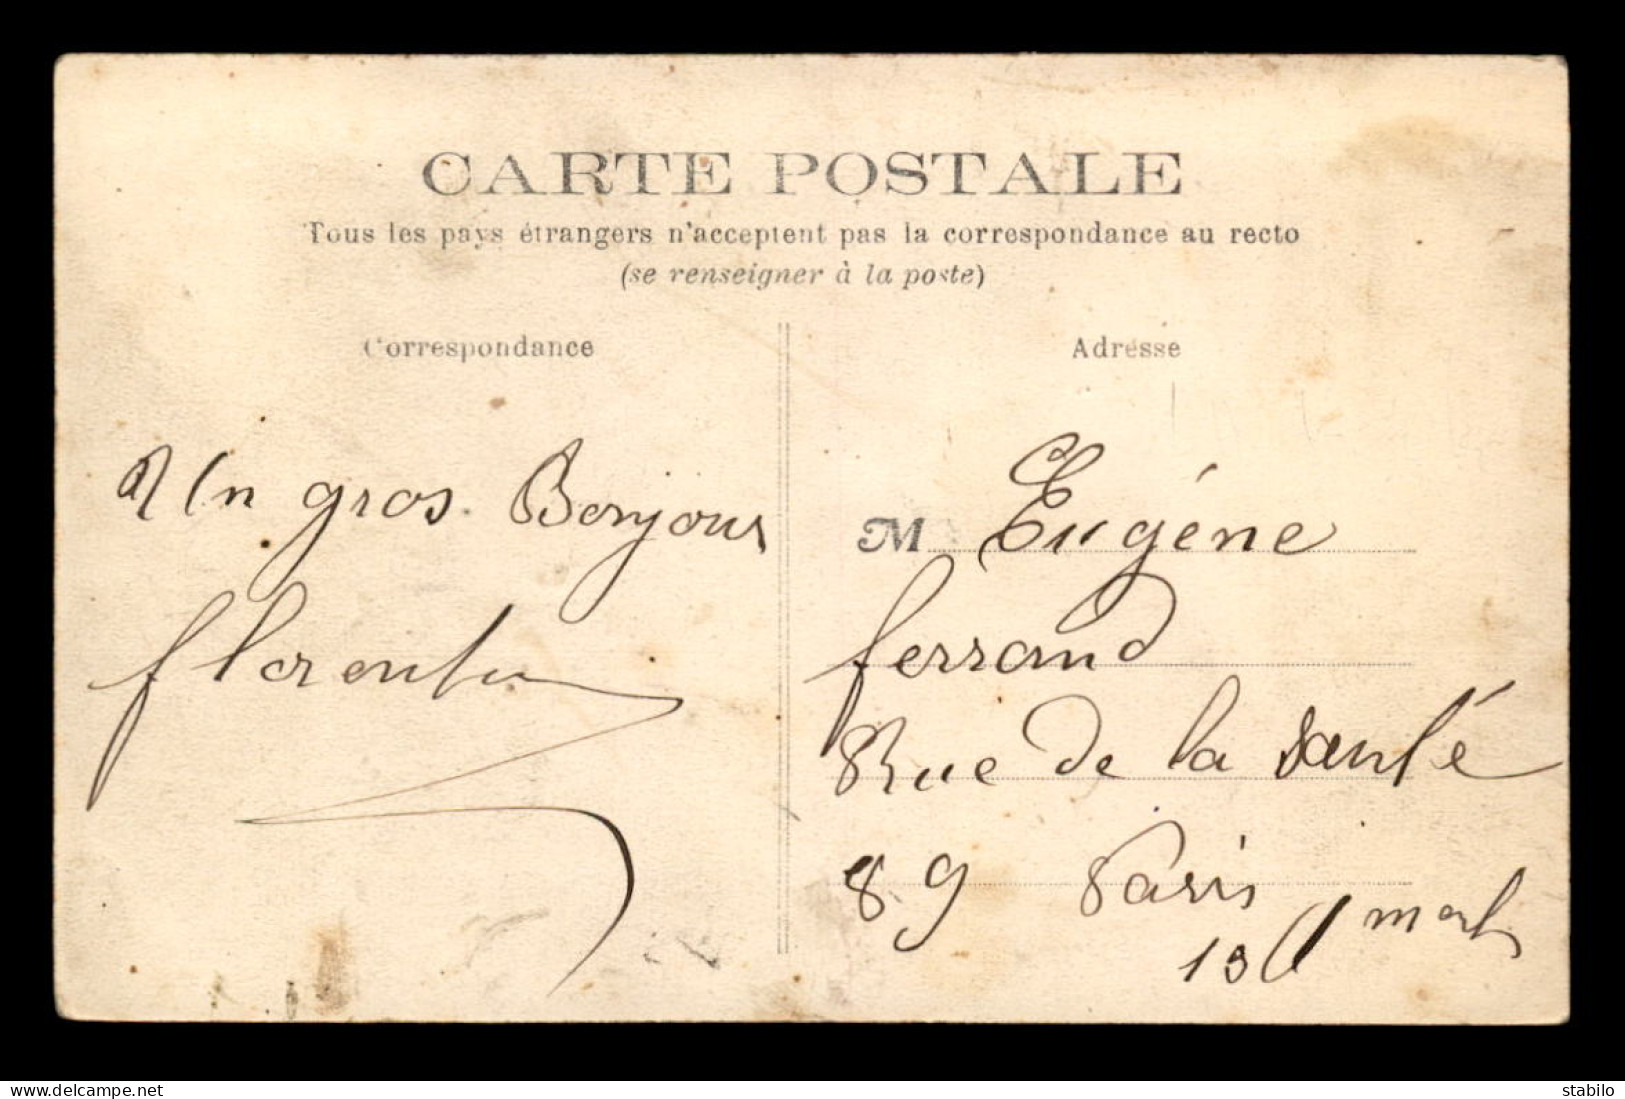 CARTE POSTALE
Tous les pays étrangers n'acceptent pas la correspondance au recto
(se renseigner à la poste)
Correspondance
Un gros Bonjour
florentin
Adresse
M Eugéne
ferrand
Rue de la Santé
89 Paris
13
delcampe.net
stabilo